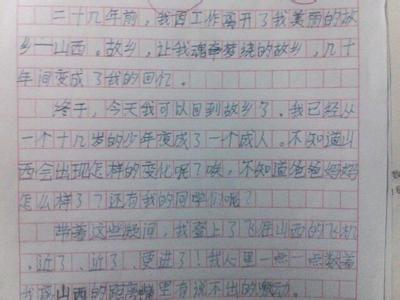 二十几年前，我因工作离开了我美丽的故
乡—山西。故乡，让我魂牵梦绕的故乡，几十
年间变成了我的回忆。
终于，今天我可以回到故乡了。我已经从
一个十几岁的少年变成了一个成人。不知道山
西会出现怎样的变化呢？唉，不知道爸爸妈妈
怎么样了？还有我的同学们呢？
带着这些疑问，我登上了飞往山西的飞机
，近了，近了，更进了！我心里一点一点数着
我离山西的距离，里有说不出的激动。